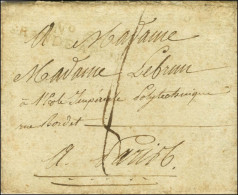 A Madame
Madame Lebrun
à l'Ecole Imperiale Polytechnique
rue Bordet
A Paris